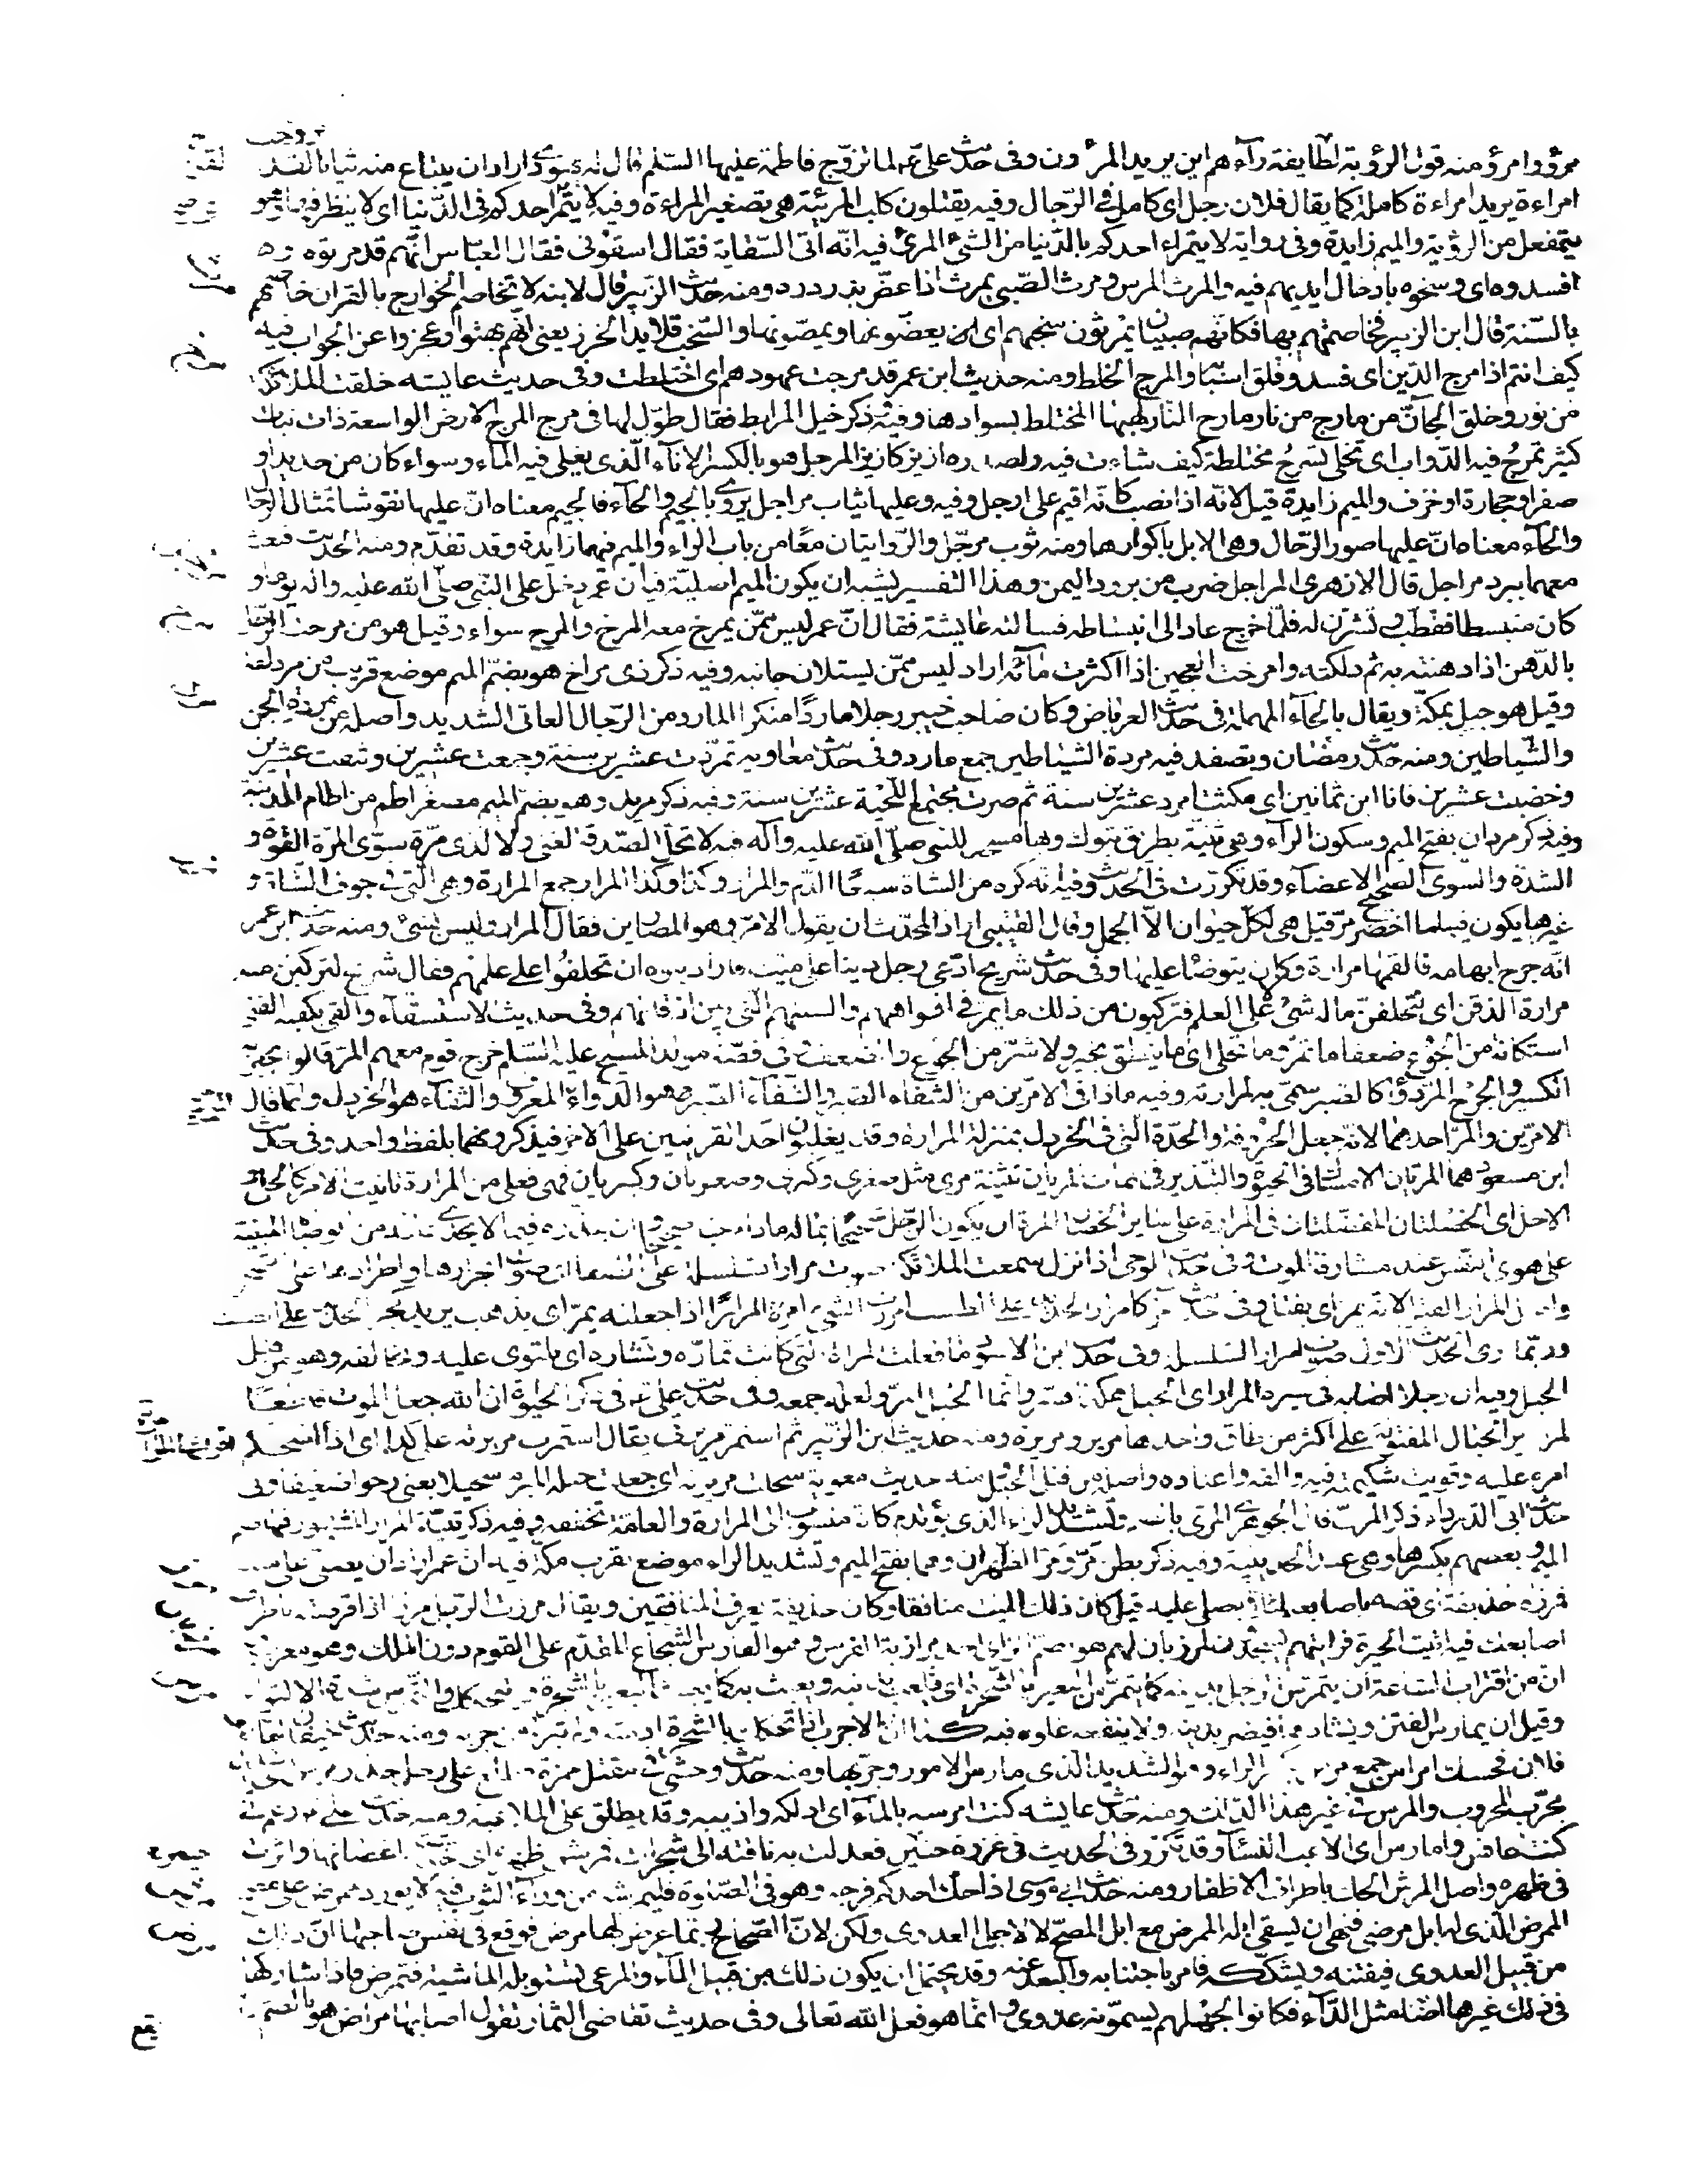 مرؤ وامرؤ ومنه قول الرؤبة لطايفة رآءهم اين يريد المرؤون وفى حديث على ع لما تزوّج فاطمة عليها السّلم قال له يهودى اراد ان يبتاع منه ثيابا لقد تزوجت
امراءة يريد امراءة كاملة كما يقال فلان رجل اى كامل فى الرّجال وفيه يقتلون كلب المرئية هى تصغير المراءة وفيه لا يتمراء احدكم فى الدّنيا اى لا ينظر فيها وهو
يتمفعل من الرؤية والميم زايدة وفى رواية لا يتمراء احدكم بالدّنيا من الشئ المرئ فيه انّه اتى السّقاية فقال اسقونى فقال العبّاس انّهم قد مرثوه و
افسدوه اى وسخوه بادخال ايديهم فيه والمرث المرس ومرث الصّبى يمرث اذا عضّ بدردره ومنه حديث الزّبير قال لابنه لا تخاصم الخوارج بالقران خاصمهم
بالسّنة قال ابن الزبير فخاصمتهم بها فكانّهم صبيان يمرثون سخبهم اى انهم يعضّونها ويمصّونها والسّخب قلايد الخرز يعنى انهم بهتوا وعجزوا عن الجواب فيه
كيف انتم اذا مرج الدّين اى فسد وقلق اسبابه والمرج الخلط ومنه حديث ابن عمر قد مرجت عهودهم اى اختلطت وفى حديث عايشه خلقت الملائكة
من نور وخلق الجانّ من مارج من نار مارج النار لهبها المختلط بسوادها وفيه ذكر خيل المرابط فقال طوّل لها فى مرج المرج الارض الواسعة ذات نبات
كثير تمرج فيه الدّواب اى تخلى تسرح مختلطة كيف شاءت فيه ولصدره ازيز كازيز المرجل هو بالكسر الاناء الّذى يغلى فيه المآء وسواء كان من حديد او
صفر او حجارة او خزف والميم زايدة قيل لانّه اذا نصب كانّه اقيم على ارجل وفيه وعليها ثياب مراجل يروى بالجيم والحآء فالجيم معناه انّ عليها نقوشا تمثال الرّجال
والحآء معناه انّ عليها صور الرّحال وهى الابل باكوارها ومنه ثوب مرجّل والرّوايتان معًا من باب الراء والميم فيهما زايدة وقد تقدّم ومنه الحديث فبعث
معهما ببرد مراجل قال الازهرى المراجل ضرب من برود اليمن وهذا التفسير يشبه ان يكون الميم اصليّة فيه ان عمر دخل على النّبى صلّى الله عليه واله يوما و
كان منبسطا فقطّب وتشزّن له فلمّا خرج عاد الى انبساطه فسالته عايشة فقال انّ عمر ليس ممّن يمرخ معه المرخ والمرح سواء وقيل هو من مرخت الرّجل
بالدّهن اذا دهنته به ثم دلكته وامرخت العجين اذا اكثرت مآئه اراد ليس ممّن يستلان جانبه وفيه ذكر ذى مراخ هو بضمّ الميم موضع قريب من مزدلفة
وقيل هو جبل بمكّة ويقال بالحآء المهملة فى حديث العرباض وكان صاحب خيبر رجلا ماردًا منكرا المارد من الرّجال العاتى الشديد واصله من مردة الجن
والشّياطين ومنه حديث رمضان وتصفد فيه مردة الشّياطين جمع مارد وفى حديث معاوية تمرّدت عشرين سنة وجمعت عشرين ونتفت عشرين
وخضبت عشرين فانا ابن ثمانين اى مكثت امرد عشرين سنة ثم صرت مجتمع اللّحية عشرين سنة وفيه ذكر مريد وهو بضمّ الميم مصغر اطم من اطام المدينة
وفيه ذكر مردان بفتح الميم وسكون الرآء وهى ثنيّة بطريق تبوك وبها مسجد للنبى صلّى الله عليه وآله فيه لا تحلّ الصّدقة لغنى ولا لذى مرّة سوّى المرّة القوّة و
الشدة والسوى الصّحيح الاعضآء وقد تكرّرت فى الحديث وفيه انّه كره من الشاة سبعًا الدّم والمرار وكذا وكذا المرار جمع المرارة وهى الّتى فى جوف الشّاة و
غيرها يكون فيها ما اخضر مرّ قيل هى لكلّ حيوان الاّ الجمل وقال القتيبى اراد المحدّث ان يقول الامرّ وهو المصارين فقال المرار وليس بشئ ومنه حديث ابن عمر
انّه جرح ابهامه فالقمها مرارة وكان يتوضا عليها وفى حديث شريح ادّعى رجل دينا على ميّت فاراد بنوه ان تحلفوا على علمهم فقال شريح لتركبن منه
مرارة الذقن اى لتحلفنّ ماله شئ لا على العلم فتركبون من ذلك ما يمرّ فى افواههم والسنتهم الّتى بين اذقانهم وفى حديث الاستسقآء والقى بكفيه الفتى
استكانة من الجوع ضعفا ما تمرّ وما تحلى اى ما ينطق بخير ولا شرّ من الجوع والضعف فى قصّة مولد المسيح عليه السّلم خرج قوم معهم المرّ قالوا نجبر به
الكسير والجرح المرّ دوآء كالصبر سمّى به لمرارته وفيه ماذا فى الامرّين من الشفاء الصبر والثّفآء الصّبر هو الدّواء المرّ المعروف والثفاء هو الخردل وانّما قال
الامرّين والمرّ احدهما لانّه جعل الحروفة والحدّة الّتى فى الخردل بمنزلة المرارة وقد يغلبون احد القرينين على الاخر فيذكرونهما بلفظ واحد وفى حديث
ابن مسعود هما المرّيان الامساك فى الحيوة والتّبذير فى الممات المرّيان تثنية مرّى مثل صغرى وكبرى وصغريان وكبريان فهى فعلى من المرارة تانيث الامرّ كالجلى و
الاجل اى الخصلتان المفضّلتان فى المرارة على ساير الخصال المرّة ان يكون الرّجل شحيحا بماله ما دام حيا صحيحا وان يبذّره فيما لا يجدى عليه من الوصايا المبنية
على هوى النفس عند مشارفة الموت وفى حديث الوحى اذا نزل سمعت الملائكة صوت مرار السّلسلة على الصّفا اى صوت انجرارها واطّرادها على الصّخر
واصل المرار الفتل لانّه يمرّ اى يفتل وفى حديث اخر كامرار الحديد على الطست امررت الشئ امرّه امرارًا اذا جعلته يمرّ اى يذهب يريد كجرّ الحديد على الطست
وربّما روى الحديث الاول صوت امرار السّلسلة وفى حديث ابى الاسود ما فعلت المراة الّتى كانت تمارّه وتشارّه اى تلتوى عليه وتخالفه وهو من فتل
الحبل وفيه ان رجلا اصابه فى سيره المرار اى الحبل هكذا فسّر وانّما الحبل المرّ ولعلّه جمعه وفى حديث علىّ ع فى ذكر الحيوة ان الله جعل الموت قاطعًا
لمراير الحبال المفتولة على اكثر من طاق واحدها مرير ومريرة ومنه حديث ابن الزّبير ثم استمرّت مريرتى يقال استمرت مريرته على كذا اى اذا استحكم
امره عليه وقويت شكيمته فيه والفه واعتاده واصله من فتل الحبل ومنه حديث معوية سحلت مريرته اى جعلت حبله المبرم سحيلا يعنى رخوا ضعيفا وفى
حديث ابى الدّرداء ذكر المرّى قال الجوهرى المرّى بالضم وتشديد الراء الّذى يؤتدم به كانّه منسوب الى المرارة والعامّة تخففه وفيه ذكر ثنيّة المرار المشهور فيها ضم
الميم وبعضهم يكسرها وهى عند الحديبية وفيه ذكر بطن مرّ ومرّ الظّهران وهما بفتح الميم وتشديد الراء موضع بقرب مكّة فيه ان عمر اراد ان يصلى على ميت
فمرزه حذيفة اى قرصه باصابعه لئلاّ يصلى عليه قيل كان ذلك الميت منافقا وكان حذيفة يعرف المنافقين ويقال مرزت الرّجل مرزا اذا قرصته باطراف
اصابعك فيه اتيت الحيرة فرايتهم يسجدون لمرزبان لهم هو بضمّ الزاى احد مرازبة الفرس وهو الفارس الشّجاع المقدّم على القوم دون الملك وهو معرّب
انّ من اقتراب السّاعة ان يتمرّس الرّجل بدينه كما يتمرّس البعير بالشّجرة اى يتلعّب بدينه ويعبث به كما يعبث البعير بالشّجرة ويتحكّك بها والتّمرّس شدّة الالتواء
وقيل ان يمارس الفتن ويشادّها فيضرّ بدينه ولا ينفعه غلوّه فيه كما انّ الاجرب اذا تحكّك بالشّجرة ادمته ولم تبرئه من جربه ومنه حديث خيفان امّا بنو
فلان فحسك امراس جمع مرس بكسر الراء وهو الشديد الّذى مارس الامور وجرّبها ومنه حديث وحشى فى مقتل حمزة فطلع على رجل حذر مرس اى شديد
مجرّب للحروب والمرس فى غير هذا الدّلك ومنه حديث عايشة كنت امرسه بالمآء اى ادلكه واذيبه وقد يطلق على الملاعبة ومنه حديث علىّ زعم انّى
كنت اعافس وامارس اى الاعب النّسآء وقد تكرّر فى الحديث فى غزوة حنين فعدلت به ناقته الى شجرات فمرشن ظهره اى خدشته اعضانها واثرت
فى ظهره واصل المرش الحك باطراف الاظفار ومنه حديث ابى موسى اذا حكّ احدكم فرجه وهو فى الصّلوة فليمرشه من ورآء الثوب فيه لا يورد ممرض على مصحّ
الممرض الّذى له ابل مرضى فنهى ان يسقى ابله الممرض مع ابل المصحّ لا لاجل العدوى ولكن لانّ الصّحاح ربّما عرض لها مرض فوقع فى نفس صاحبها انّ ذلك
من قبيل العدوى فيفتنه ويشكّكه فامر باجتنابه والبعد عنه وقد يحتمل ان يكون ذلك من قبل المآء والمرعى تستوبله الماشية فتمرض فاذا شاركها
فى ذلك غيرها اصابه مثل الدّآء فكانوا لجهلهم يسمّونه عدوى وانّما هو فعل الله تعالى وفى حديث تقاضى الثمار تقول اصابها مراض هو بالضم
يقع